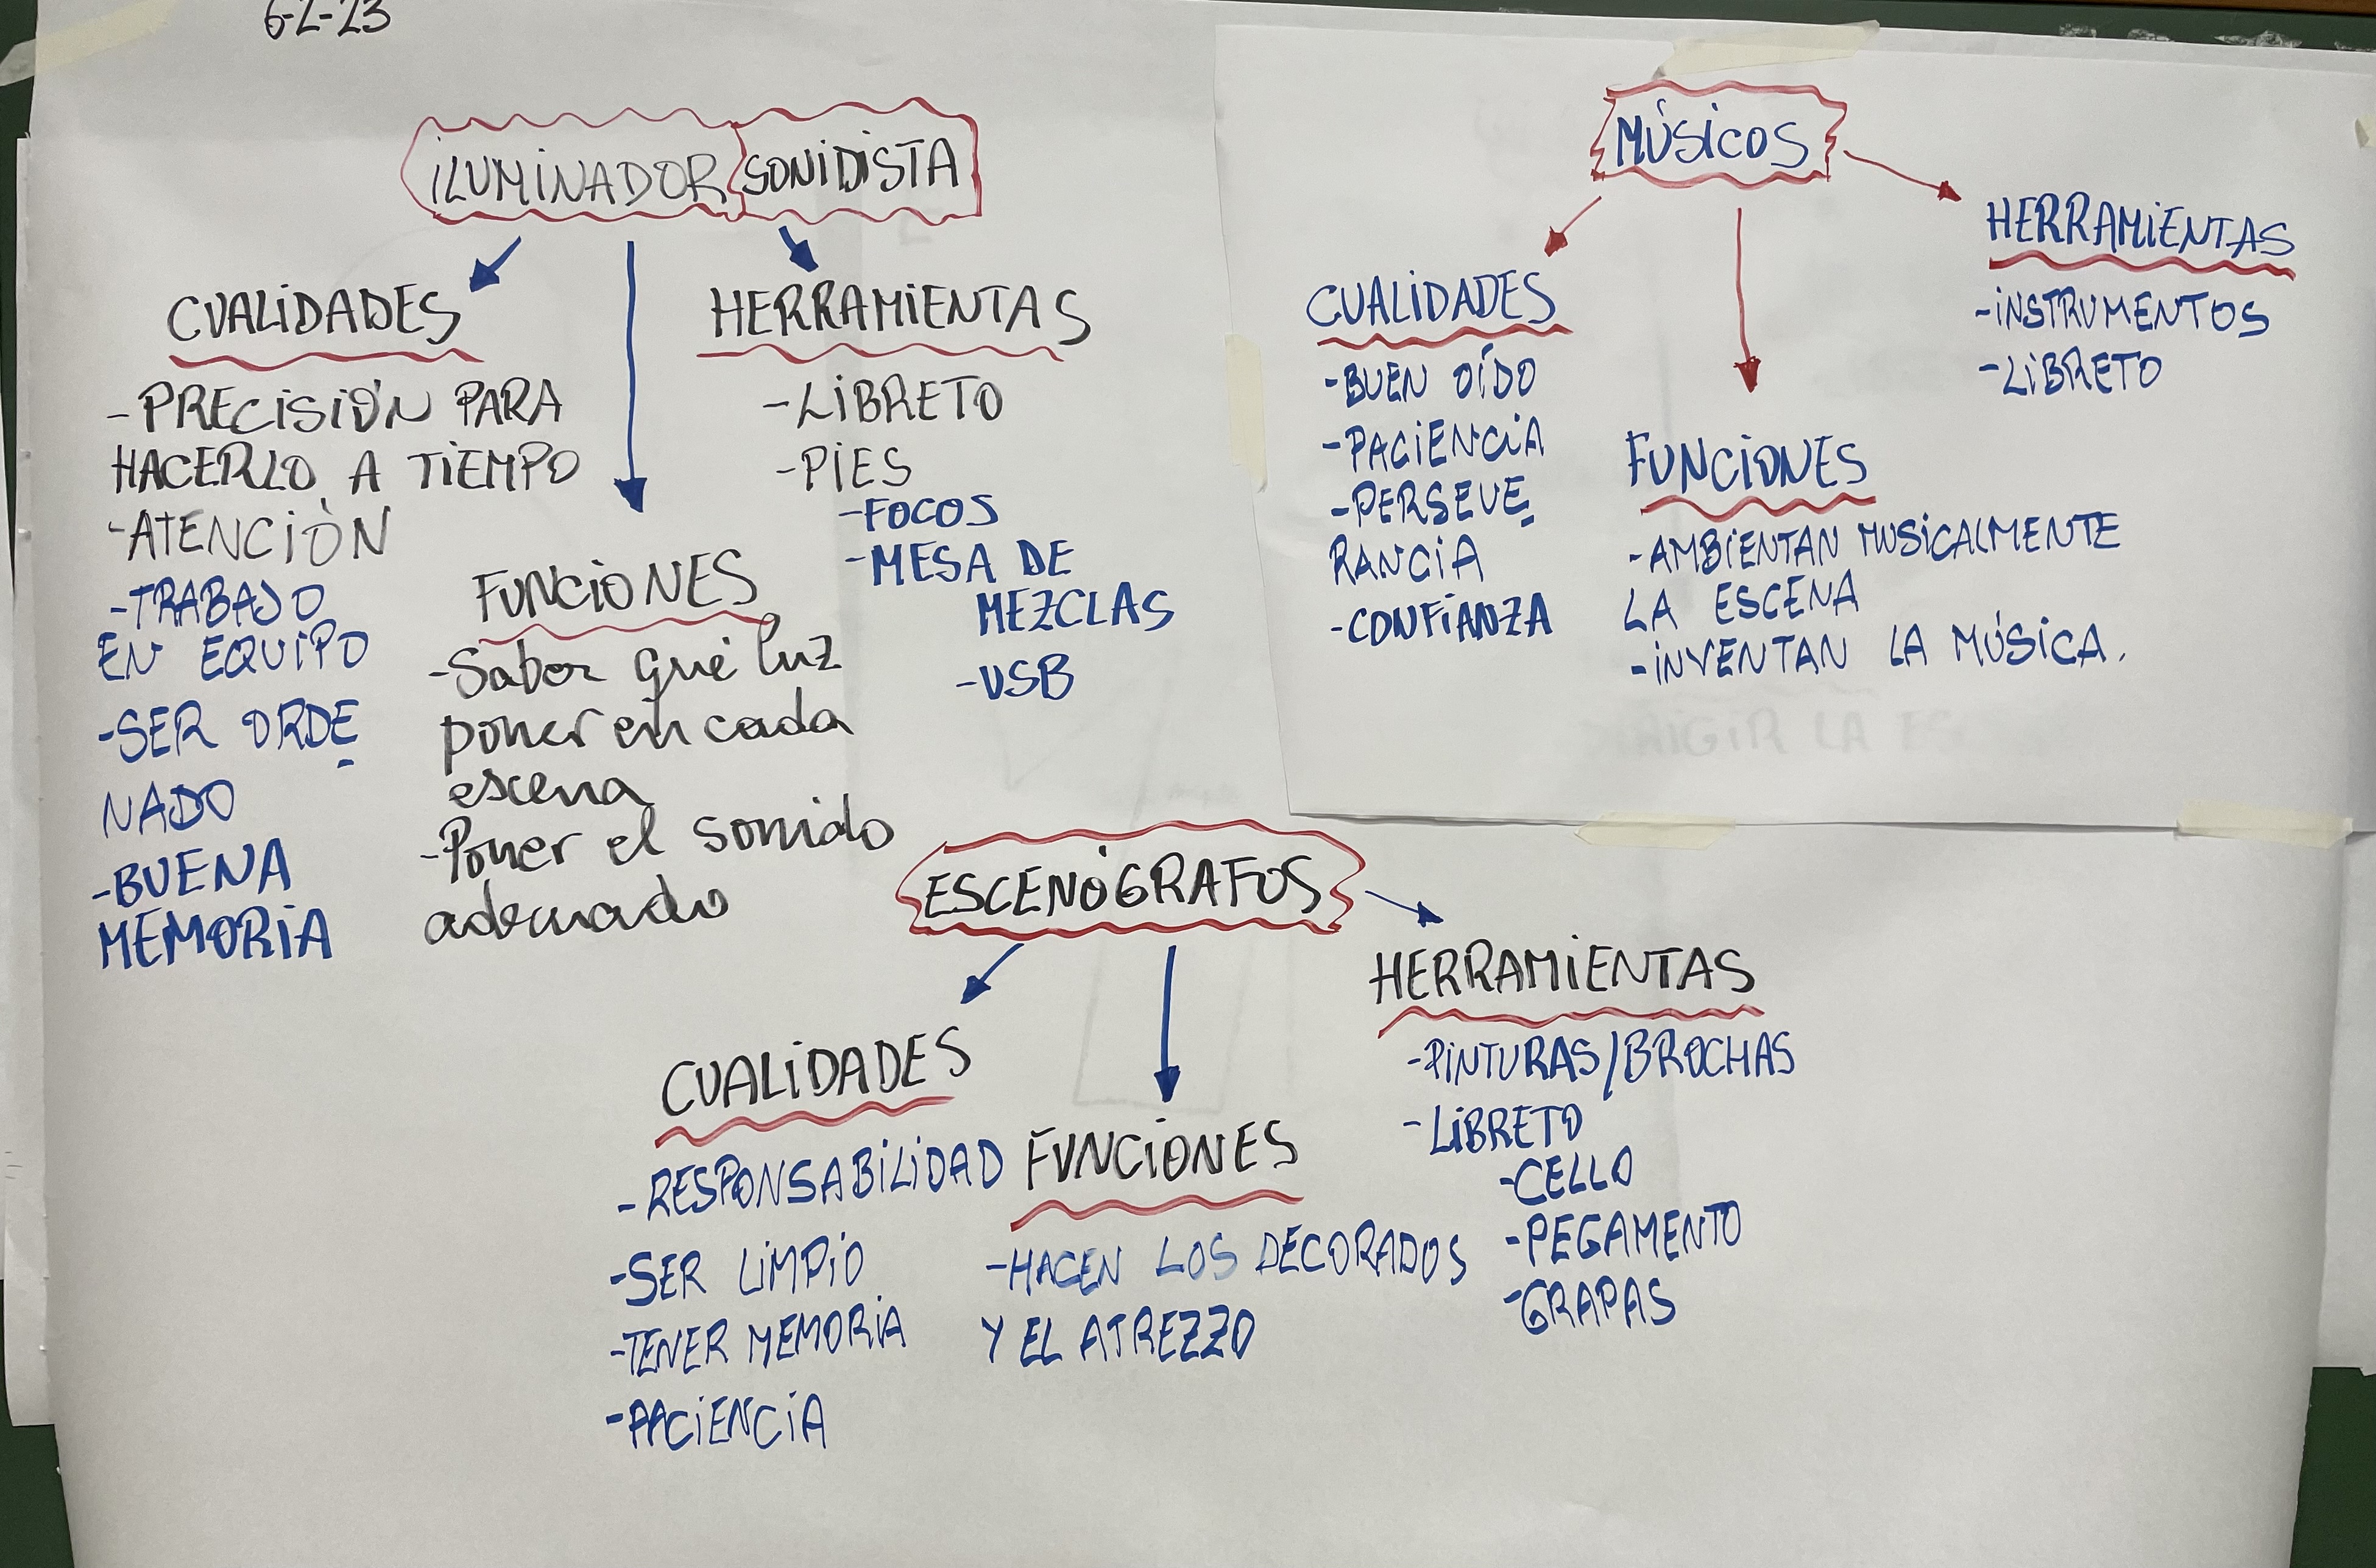 6-2-23
ILUMINADOR SONIDISTA
CUALIDADES
-PRECISIÓN PARA
HACERLO A TIEMPO
-ATENCIÓN
-TRABAJO
EN EQUIPO
-SER ORDE
NADO
-BUENA
MEMORIA
FUNCIONES
-Saber qué luz
poner en cada
escena
-Poner el sonido
adecuado
HERRAMIENTAS
-LIBRETO
-PIES
-FOCOS
-MESA DE
MEZCLAS
-USB
MÚSICOS
CUALIDADES
-BUEN OÍDO
-PACIENCIA
-PERSEVE
RANCIA
-CONFIANZA
FUNCIONES
-AMBIENTAN MUSICALMENTE
LA ESCENA
-INVENTAN LA MÚSICA.
HERRAMIENTAS
-INSTRUMENTOS
-LIBRETO
ESCENÓGRAFOS
CUALIDADES
-RESPONSABILIDAD
-SER LIMPIO
-TENER MEMORIA
-PACIENCIA
FUNCIONES
-HACEN LOS DECORADOS
Y EL ATREZZO
HERRAMIENTAS
-PINTURAS/BROCHAS
-LIBRETO
-CELLO
-PEGAMENTO
-GRAPAS